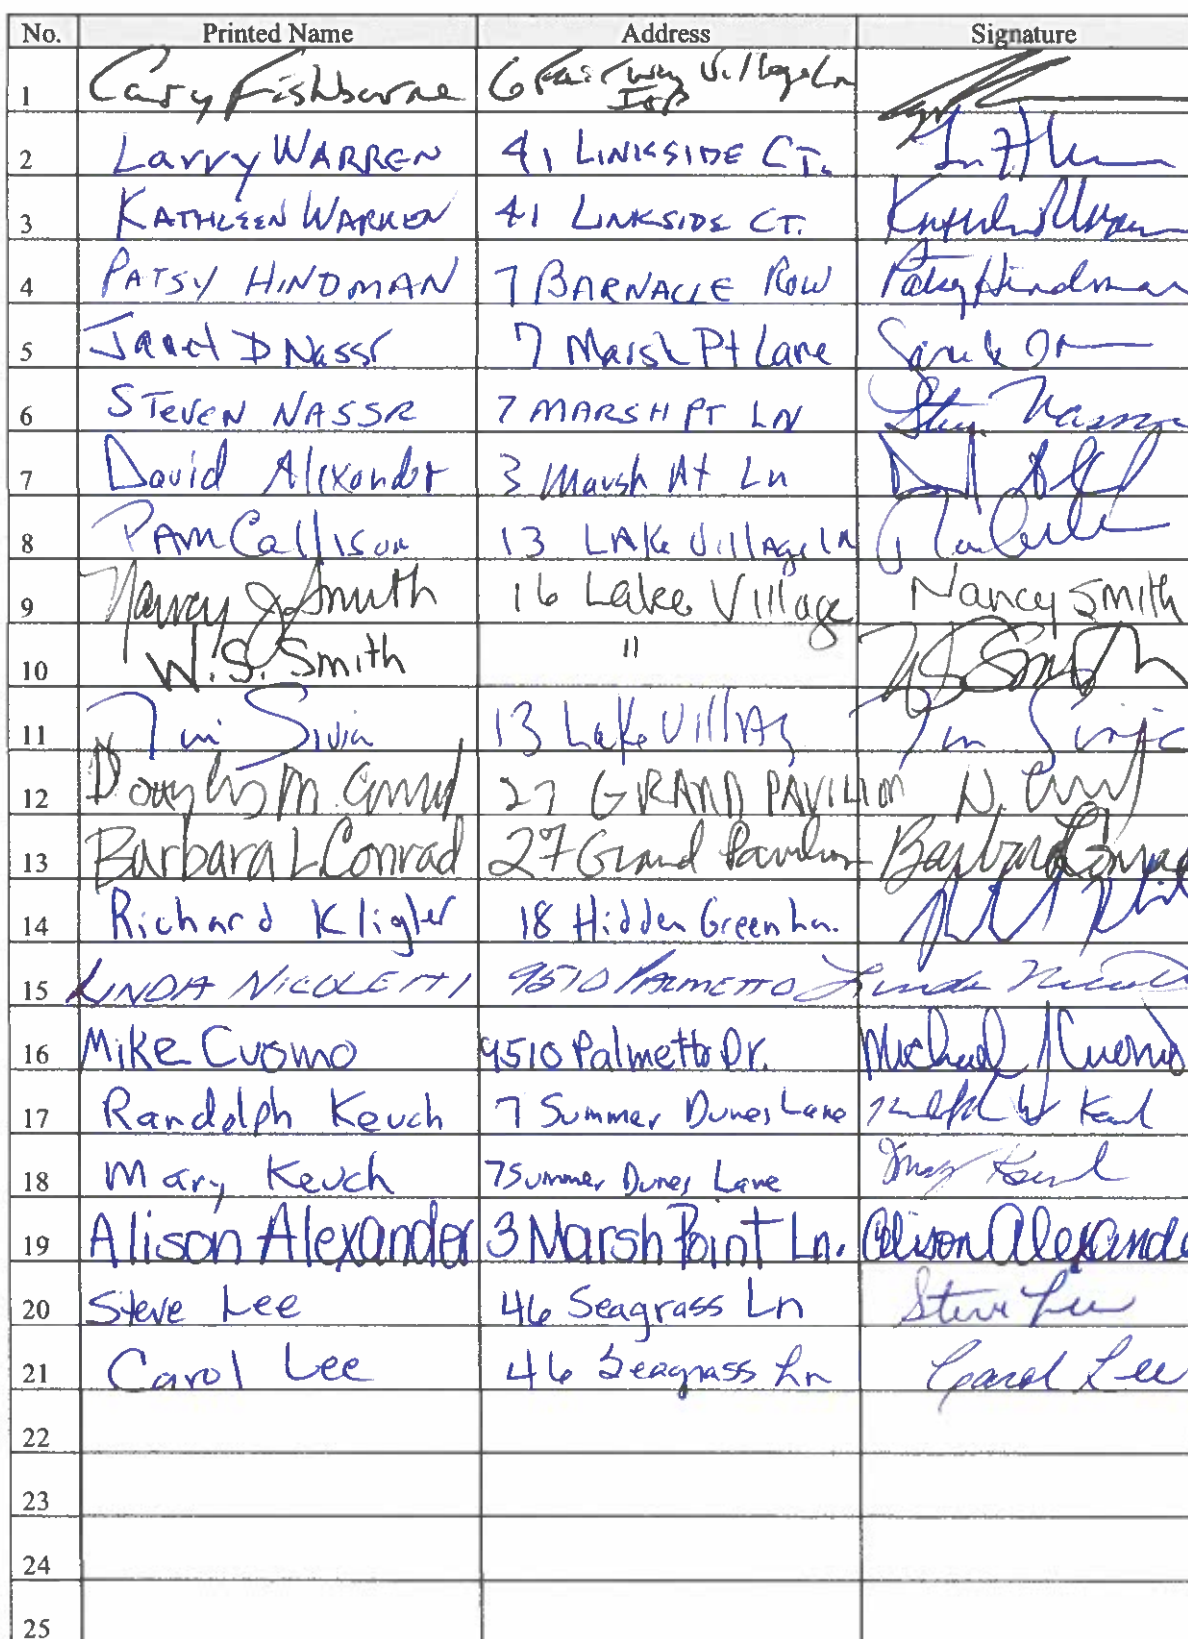 No. Printed Name Address Signature
1 Cary Fishburne 6 Fairway Village Ln
IOP
2 Larry WARREN 41 LINKSIDE CT.
3 KATHLEEN WARREN 41 LINKSIDE CT.
4 PATSY HINDMAN 7 BARNACLE ROW Patsy Hindman
5 Janet D Nassr 7 Marsh Pt Lane
6 STEVEN NASSR 7 MARSH PT LN Steven Nassr
7 David Alexander 3 Marsh Pt Ln
8 PAM Callison 13 LAke Village LN
9 Nancy J Smith 16 Lake Village Nancy Smith
10 W.S. Smith " WS Smith
11 Tim 13 Lake Village Tim
12 Douglas M. Conrad 27 GRAND PAVILION D. Conrad
13 Barbara L Conrad 27 Grand Pavilion Barbara L Conrad
14 Richard Kligler 18 Hidden Green Ln.
15 LINDA NICOLETTI 9510 PALMETTO Linda Nicoletti
16 Mike Cuomo 9510 Palmetto Dr. Michael J Cuomo
17 Randolph Keuch 7 Summer Dunes Lane Randolph W Keuch
18 Mary Keuch 7 Summer Dunes Lane Mary Keuch
19 Alison Alexander 3 Marsh Point Ln. Alison Alexande
20 Steve Lee 46 Seagrass Ln Steve Lee
21 Carol Lee 46 Seagrass Ln Carol Lee
22
23
24
25